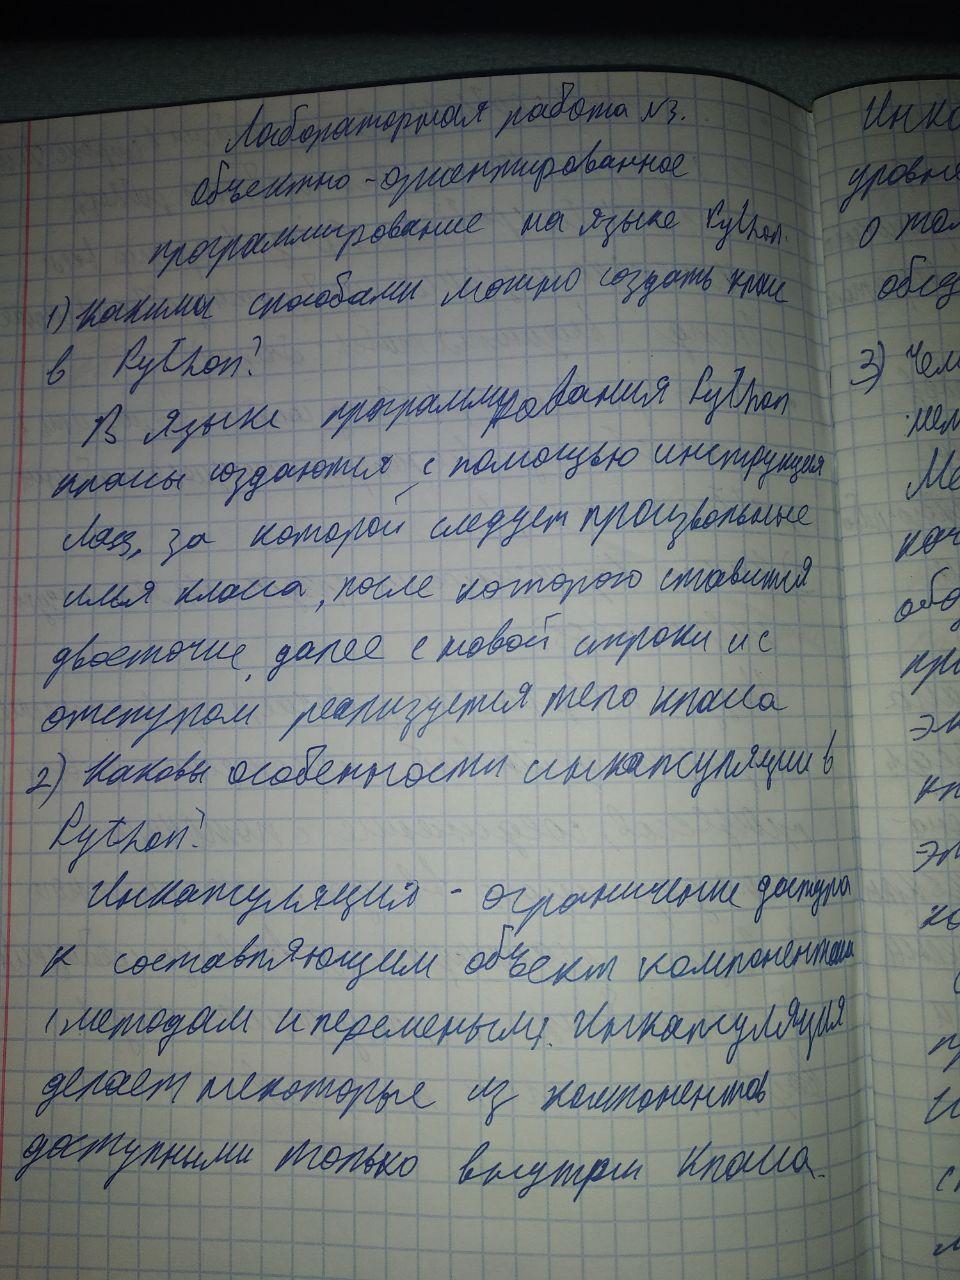 Лабораторная работа №3.
Объектно-ориентированное
программирование на языке Python.
1) Какими способами можно создать клас
в Python?
В языке программирования Python
класы создаются с помощью инструкция
class, за которой следует произвольные
имя класа, после которого ставится
двоеточие, далее с новой строки и с
отступом реализуется тело класа
2) Каковы особенности инкапсуляции в
Python?
Инкапсуляция - ограничение доступа
к составляющим объект компонентам
(методам и переменым). Инкапсуляция
делает некоторые из компонентов
доступными только внутри класа.
Инка
уровне
о том
3) Чем